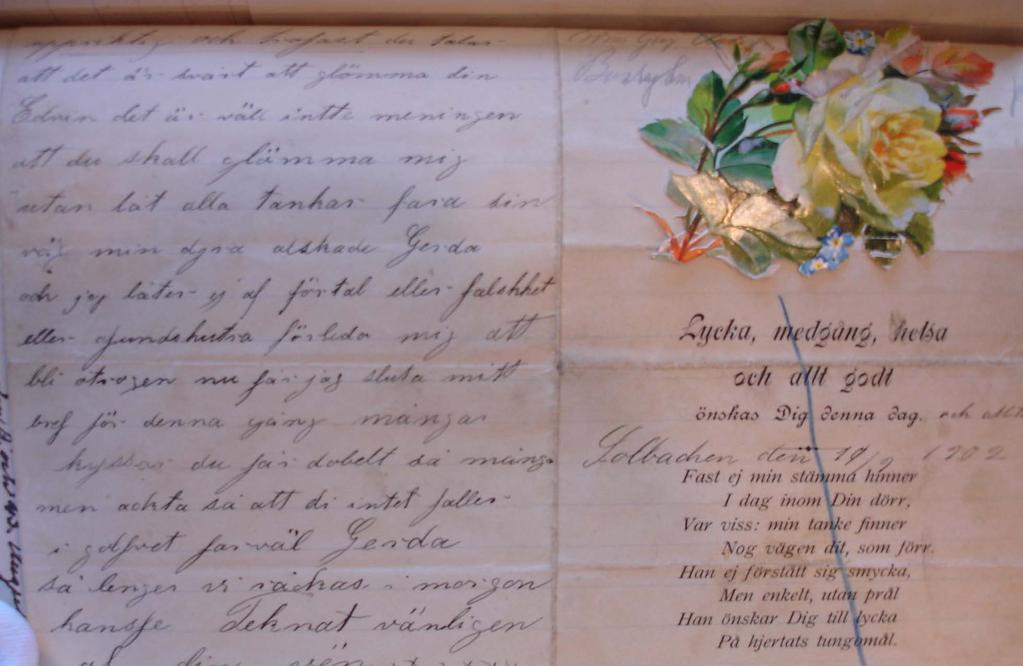 uppriktig och trofast du talar
att det är svårt att glömma din
Edvin det är väle intte meningen
att du skall glömma mig
utan låt alla tankar fara sin
väg min dyra alskade Gerda
och jag låter ej af förtal eller falskhet
eller förleda mig att
bli otrogen nu får jag sluta mitt
bref för denna gång mångar
kyssar du får dobelt så mång
men ackta så att di intet faller
i golfvet farväl Gerda
så lenger vi räckas i morgon
kansje Teknat vänligen
af din vän
Lycka, medgång, helsa
och allt godt
önskas Dig denna dag. och alltid
Solbacken den 19/9 1902
Fast ej min stämma hinner
I dag inom Din dörr,
Var viss: min tanke finner
Nog vägen dit, som förr.
Han ej förstått sig smycka,
Men enkelt, utan prål
Han önskar Dig till lycka
På hjertats tungomål.